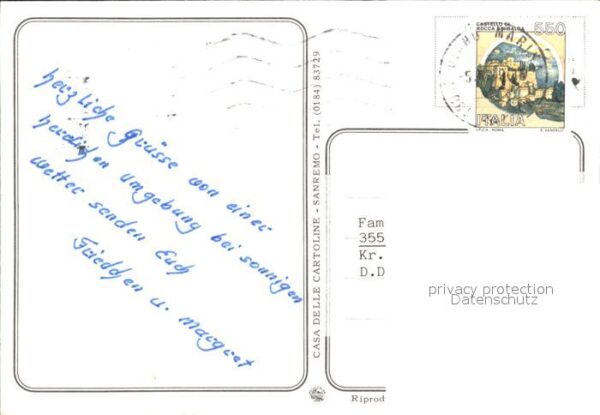 herzliche Grüsse von einer
herrlichen Umgebung bei sonnigen
Wetter senden Euch
Friedchen u. Margret
CASA DELLE CARTOLINE - SANREMO - Tel. (0184) 83729
CASTELLO DI
ROCCA SINIBALDA
550
ITALIA
I.P.Z.S. ROMA
E. VANGELLI
Fam
355
Kr.
D.D
privacy protection
Datenschutz
Riprod